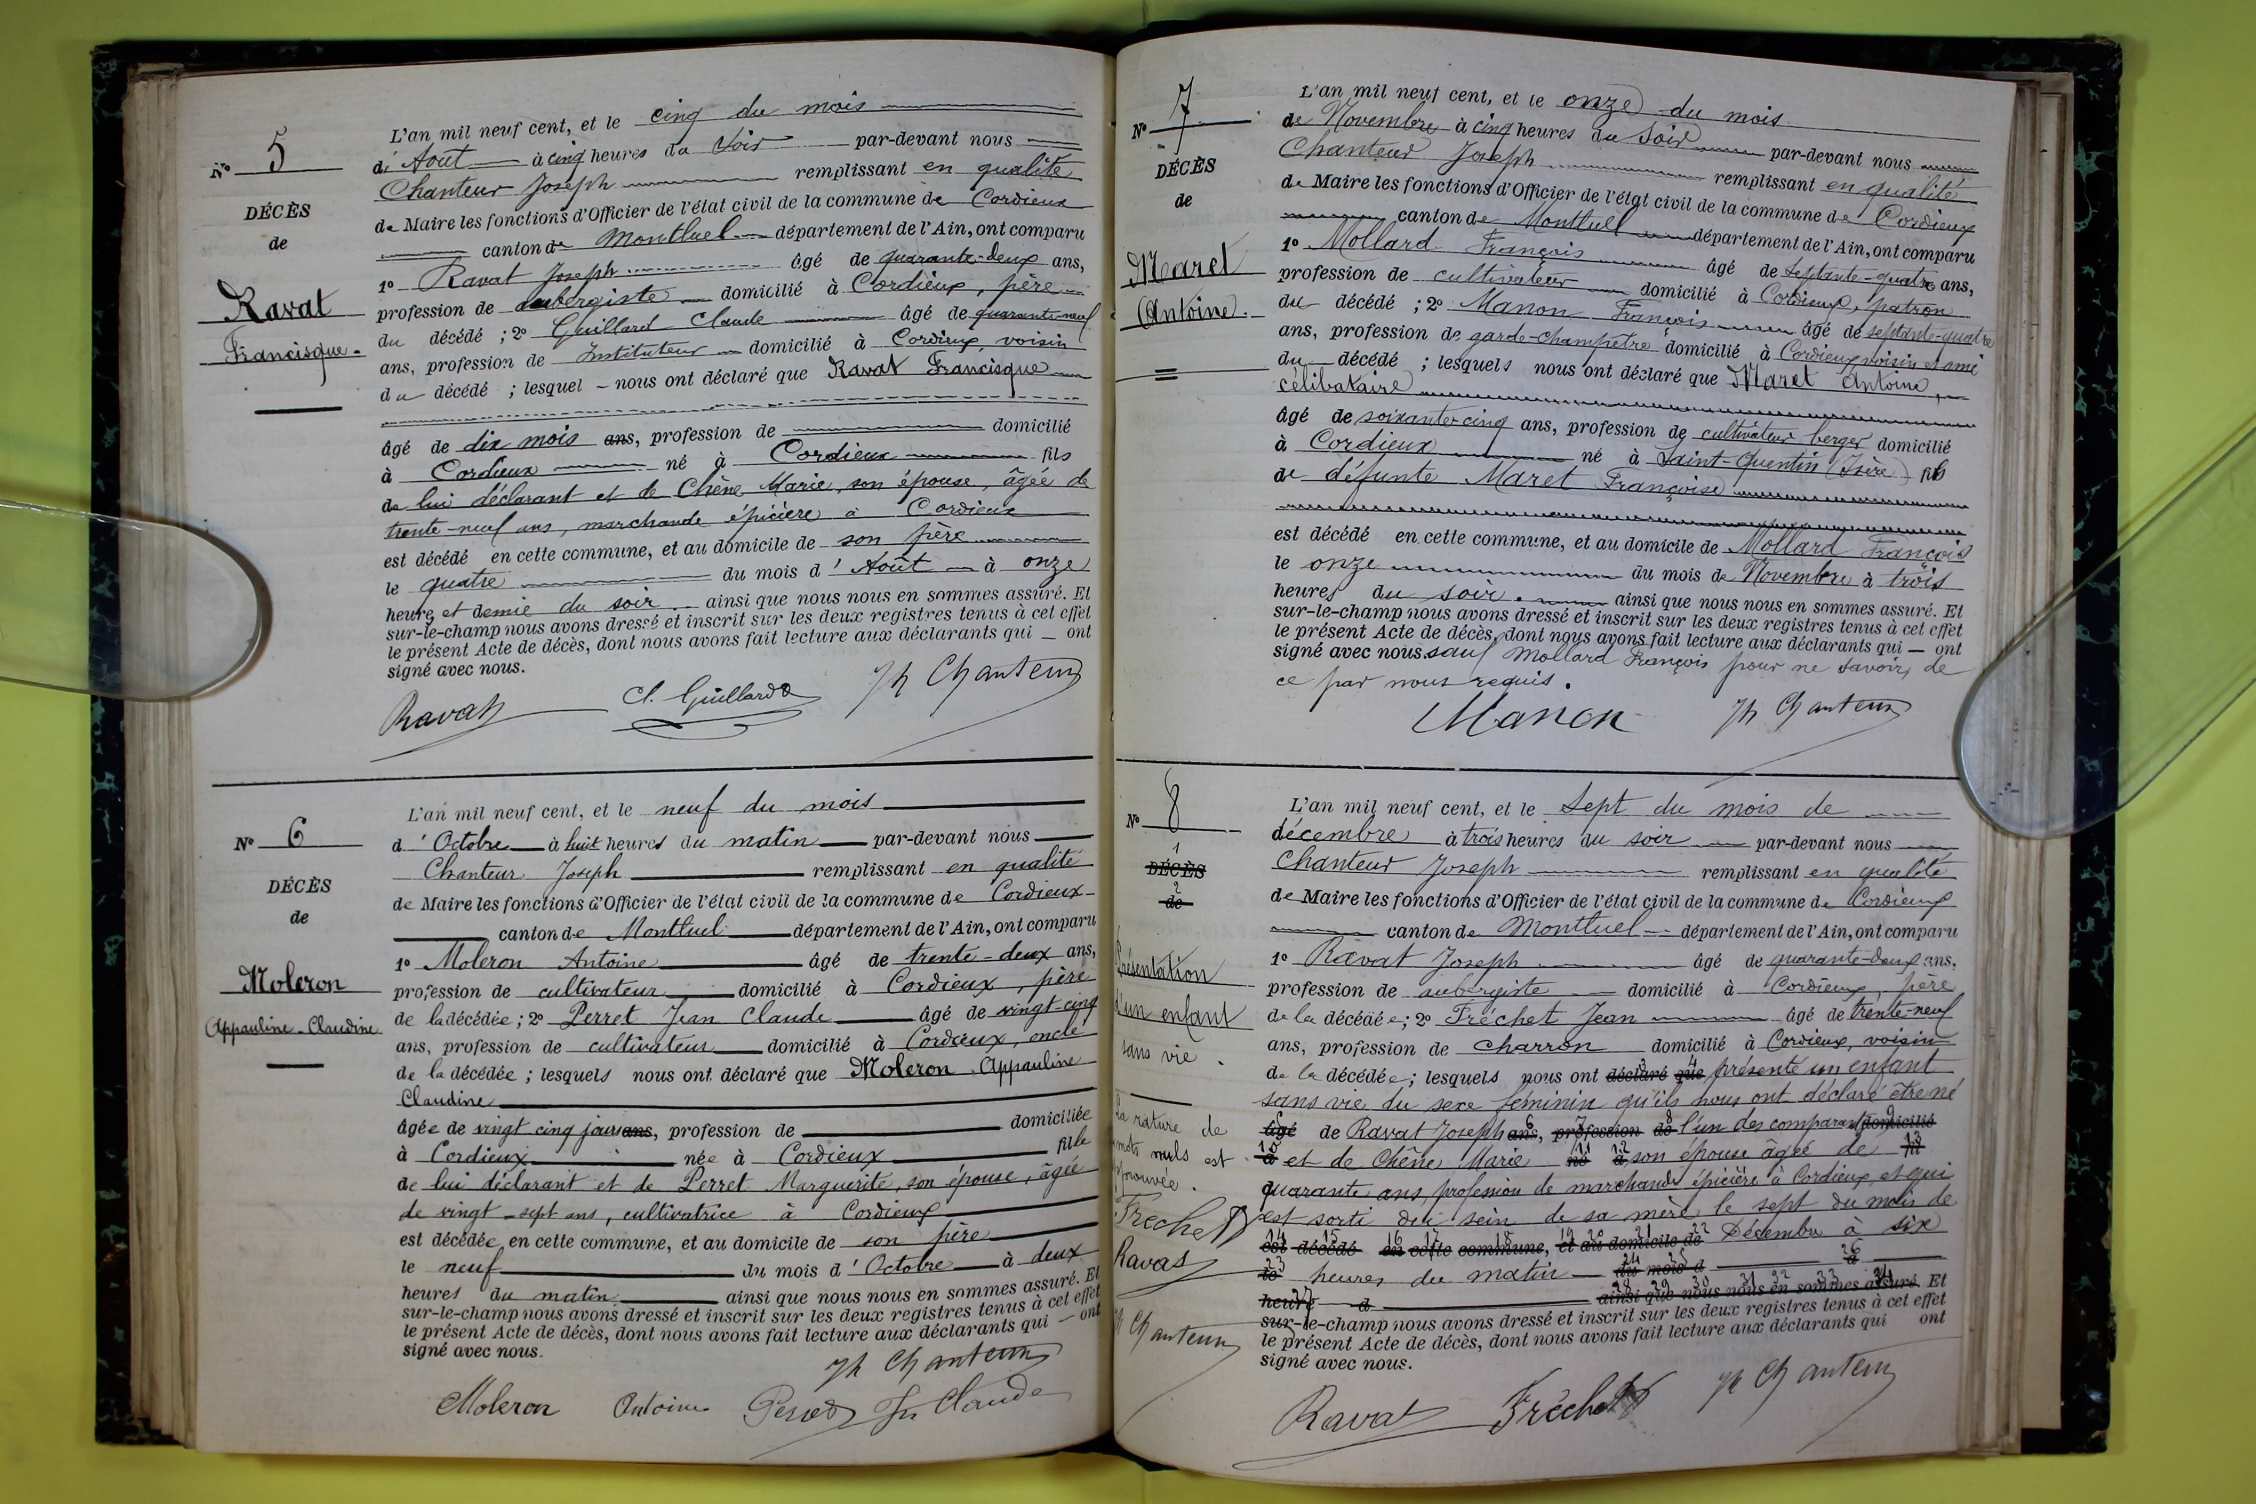 N° 5
DÉCÈS
de
Ravat
Francisque.
L'an mil neuf cent, et le cinq du mois
d'Août à cinq heures du soir par-devant nous
Chanteur Joseph remplissant en qualité
de Maire les fonctions d'Officier de l'état civil de la commune de Cordieux
canton de Montluel département de l'Ain, ont comparu
1° Ravat Joseph âgé de quarante-deux ans,
profession de aubergiste domicilié à Cordieux, père
du décédé ; 2° Guillard Claude âgé de quarante-neuf
ans, profession de Instituteur domicilié à Cordieux, voisin
du décédé ; lesquel nous ont déclaré que Ravat Francisque
âgé de dix mois ans, profession de domicilié
à Cordieux né à Cordieux fils
de lui déclarant et de Chêne Marie, son épouse, âgée de
trente-neuf ans, marchande épicière à Cordieux
est décédé en cette commune, et au domicile de son père
le quatre du mois d'Août à onze
heures et demie du soir ainsi que nous nous en sommes assuré. Et
sur-le-champ nous avons dressé et inscrit sur les deux registres tenus à cet effet
le présent Acte de décès, dont nous avons fait lecture aux déclarants qui ont
signé avec nous.
Ravat Cl. Guillard Jh Chanteur
N° 6
DÉCÈS
de
Moleron
Appauline-Claudine
L'an mil neuf cent, et le neuf du mois
d'Octobre à huit heures du matin par-devant nous
Chanteur Joseph remplissant en qualité
de Maire les fonctions d'Officier de l'état civil de la commune de Cordieux
canton de Montluel département de l'Ain, ont comparu
1° Moleron Antoine âgé de trente-deux ans,
profession de cultivateur domicilié à Cordieux, père
de la décédée ; 2° Perret Jean Claude âgé de vingt-cinq
ans, profession de cultivateur domicilié à Cordieux, oncle
de la décédée ; lesquels nous ont déclaré que Moleron Appauline
Claudine
âgée de vingt cinq jours ans, profession de domiciliée
à Cordieux née à Cordieux fille
de lui déclarant et de Perret Marguerite, son épouse, âgée
de vingt-sept ans, cultivatrice à Cordieux
est décédée en cette commune, et au domicile de son père
le neuf du mois d'Octobre à deux
heures du matin ainsi que nous nous en sommes assuré. Et
sur-le-champ nous avons dressé et inscrit sur les deux registres tenus à cet effet
le présent Acte de décès, dont nous avons fait lecture aux déclarants qui — ont
signé avec nous.
Jh Chanteur
Moleron Antoine Perret Jn Claude
N° 7
DÉCÈS
de
Maret
(Antoine).
L'an mil neuf cent, et le onze du mois
de Novembre à cinq heures du soir par-devant nous
Chanteur Joseph remplissant en qualité
de Maire les fonctions d'Officier de l'état civil de la commune de Cordieux
canton de Montluel département de l'Ain, ont comparu
1° Mollard François âgé de septante-quatre ans,
profession de cultivateur domicilié à Cordieux, patron
du décédé ; 2° Manon François âgé de septante-quatre
ans, profession de garde-champêtre domicilié à Cordieux, voisin et ami
du décédé ; lesquels nous ont déclaré que Maret Antoine,
célibataire
âgé de soixante-cinq ans, profession de cultivateur berger domicilié
à Cordieux né à Saint-Quentin (Isère) fils
de défunte Maret Françoise
est décédé en cette commune, et au domicile de Mollard François
le onze du mois de Novembre à trois
heures du soir. ainsi que nous nous en sommes assuré. Et
sur-le-champ nous avons dressé et inscrit sur les deux registres tenus à cet effet
le présent Acte de décès, dont nous avons fait lecture aux déclarants qui — ont
signé avec nous sauf Mollard François pour ne savoir, de
ce par nous requis.
Manon Jh Chanteur
N° 8
1
DÉCÈS
2
de
Présentation
d'un enfant
sans vie.
La rature de
mots nuls est
approuvée.
Frechet
Ravat
Jh Chanteur
L'an mil neuf cent, et le Sept du mois de
décembre à trois heures du soir par-devant nous
Chanteur Joseph remplissant en qualité
de Maire les fonctions d'Officier de l'état civil de la commune de Cordieux
canton de Montluel département de l'Ain, ont comparu
1° Ravat Joseph âgé de quarante-deux ans,
profession de aubergiste domicilié à Cordieux, père
de la décédée ; 2° Fréchet Jean âgé de trente-neuf
ans, profession de charron domicilié à Cordieux, voisin
de la décédée ; lesquels nous ont déclaré que présenté un enfant
sans vie du sexe féminin qu'ils nous ont déclaré être né
âgé de Ravat Joseph ans, profession de l'un des comparants domicilié
à et de Chêne Marie né à son épouse âgée de fil
quarante ans, profession de marchande épicière à Cordieux, et qui
est sorti du sein de sa mère le sept du mois de
est décédé en cette commune, et au domicile de Décembre à six
le heures du matin du mois d à
heure d ainsi que nous nous en sommes assuré. Et
sur-le-champ nous avons dressé et inscrit sur les deux registres tenus à cet effet
le présent Acte de décès, dont nous avons fait lecture aux déclarants qui ont
signé avec nous.
Ravat Fréchet Jh Chanteur